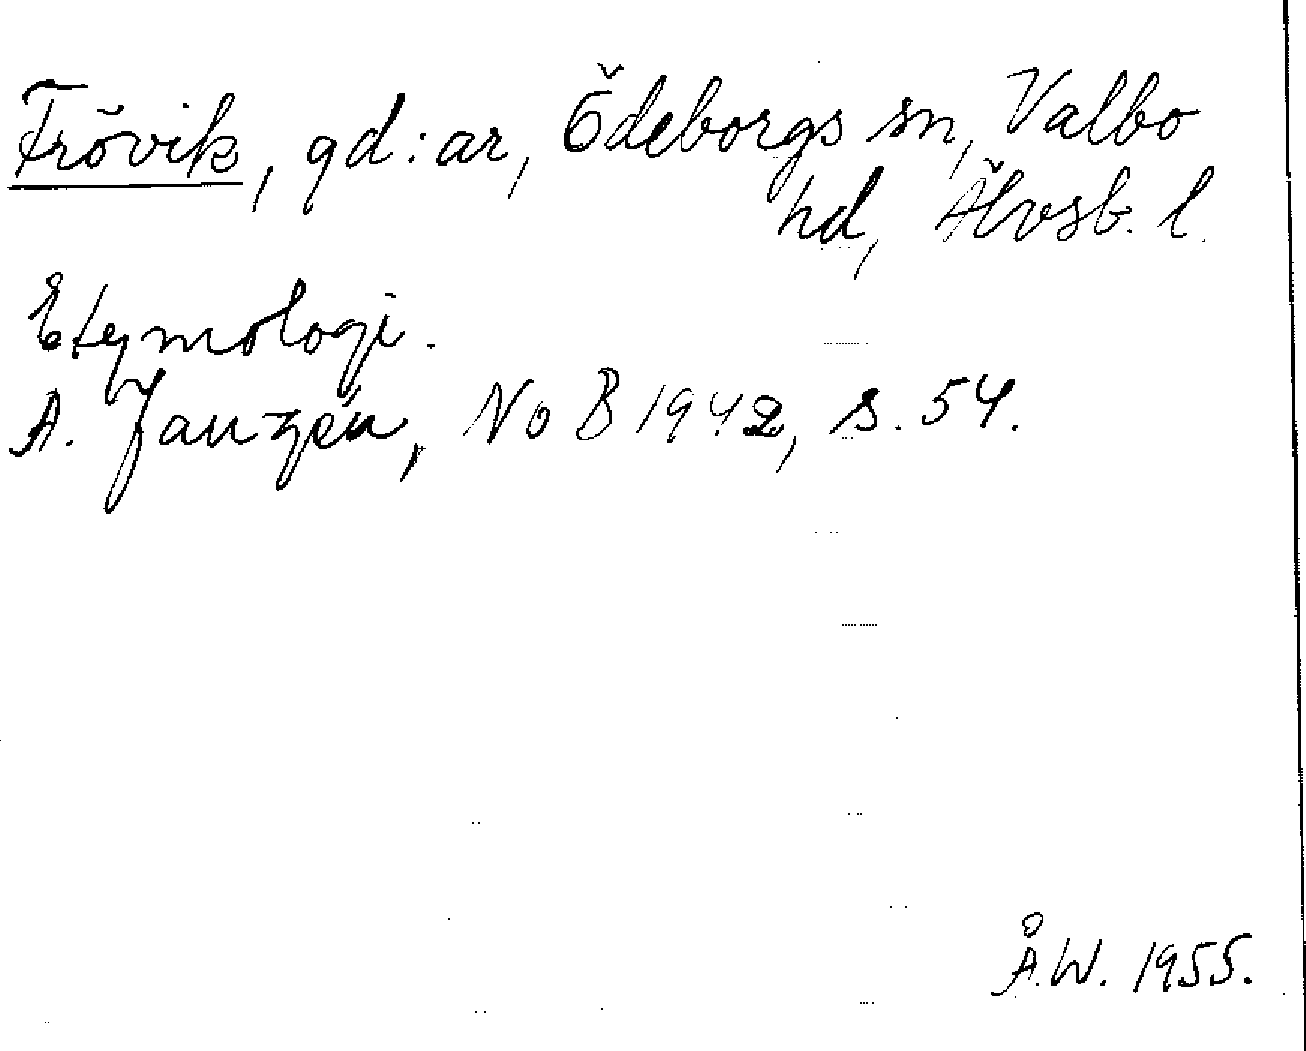 Frövik, gd:ar, Ödeborgs sn, Valbo
hd, Älvsb. l.
Etymologi.
A. Janzén, NoB 1942, s. 54.
Å.W. 1955.